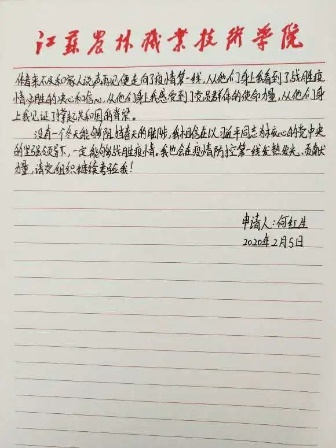 江苏农林职业技术学院
住看来不及和家人说声再见便走向了疫情第一线,从他们身上我看到了战胜疫
情必胜的决心和信心,从他们身上我感受到了党员群体的使命力量,从他们身
上我见证了撑起共和国的脊梁。
没有一个冬天能够阻挡春天的脚步,我相信在以习近平同志为核心的党中央
的坚强领导下,一定能够战胜疫情。我也会在疫情防控第一线发热发光、贡献
力量,请党组织继续考验我!
申请人:何红生
2020年2月5日